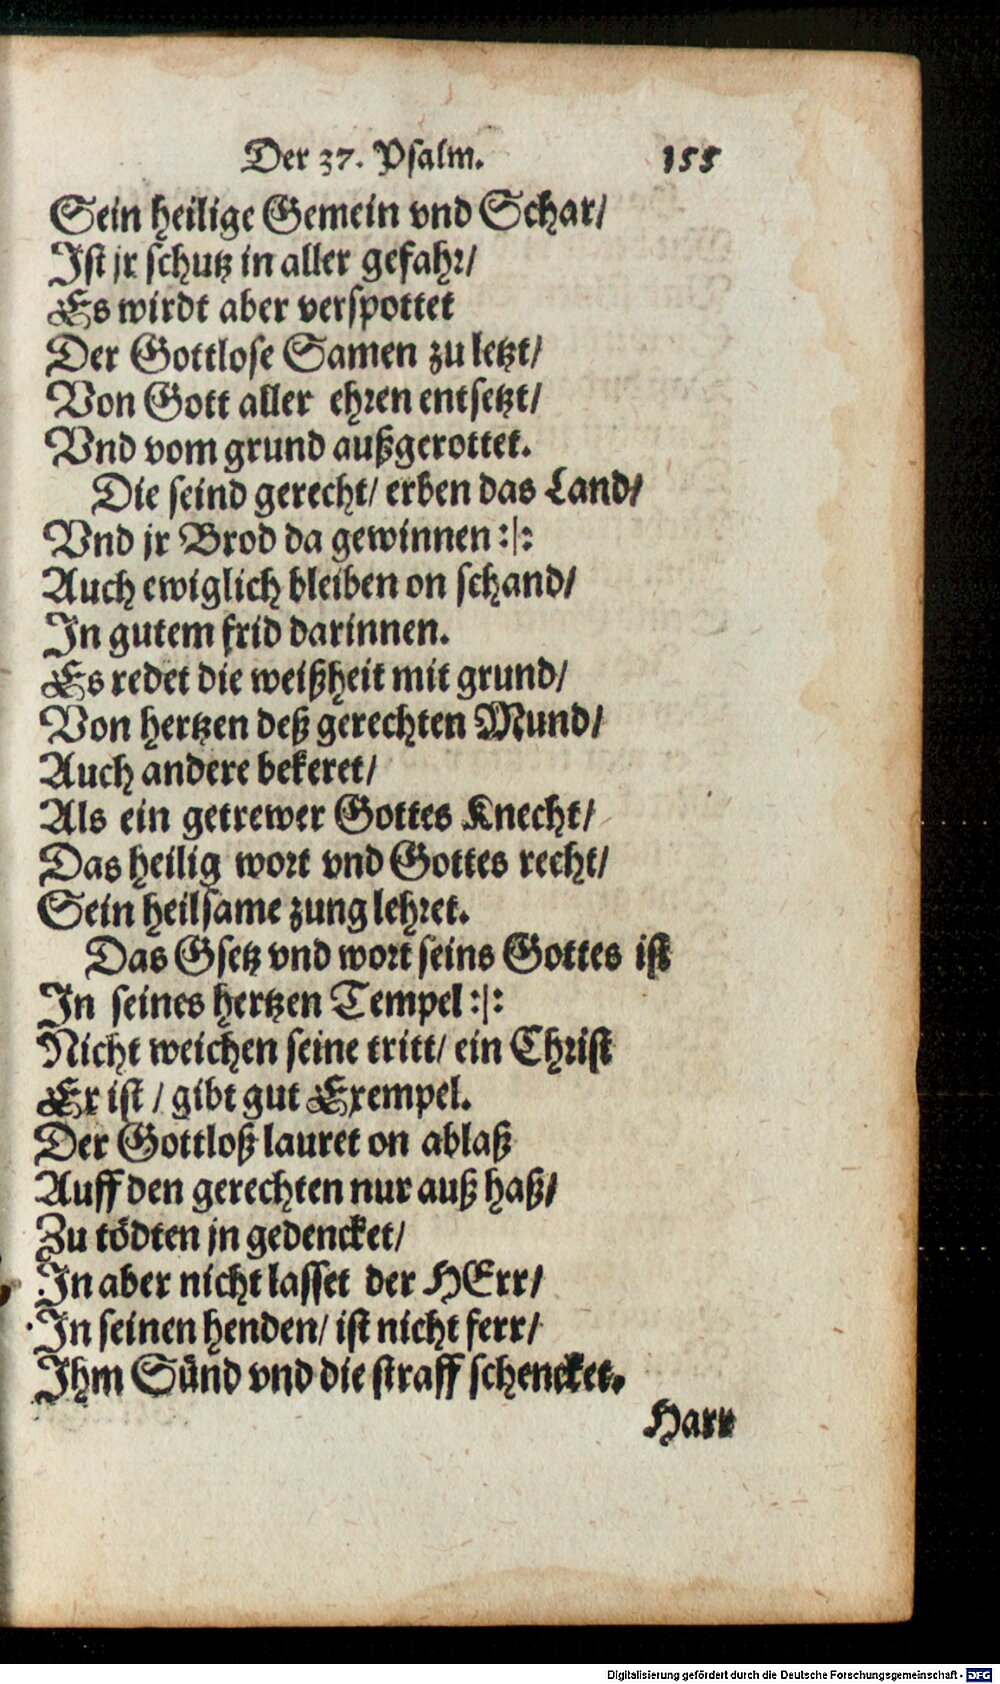 Der 37. Psalm. 155
Sein heilige Gemein vnd Schar/
Ist jr schutz in aller gefahr/
Es wirdt aber verspottet
Der Gottlose Samen zu letzt/
Von Gott aller ehren entsetzt/
Vnd vom grund außgerottet.
Die seind gerecht/ erben das Land/
Vnd jr Brod da gewinnen :|:
Auch ewiglich bleiben on schand/
In gutem frid darinnen.
Es redet die weißheit mit grund/
Von hertzen deß gerechten Mund/
Auch andere bekeret/
Als ein getrewer Gottes Knecht/
Das heilig wort vnd Gottes recht/
Sein heilsame zung lehret.
Das Gsetz vnd wort seins Gottes ist
In seines hertzen Tempel :|:
Nicht weichen seine tritt/ ein Christ
Er ist / gibt gut Exempel.
Der Gottloß lauret on ablaß
Auff den gerechten nur auß haß/
Zu tödten jn gedencket/
In aber nicht lasset der HErr/
In seinen henden/ ist nicht ferr/
Ihm Sünd vnd die straff schencket.
Harr
Digitalisierung gefördert durch die Deutsche Forschungsgemeinschaft - DFG